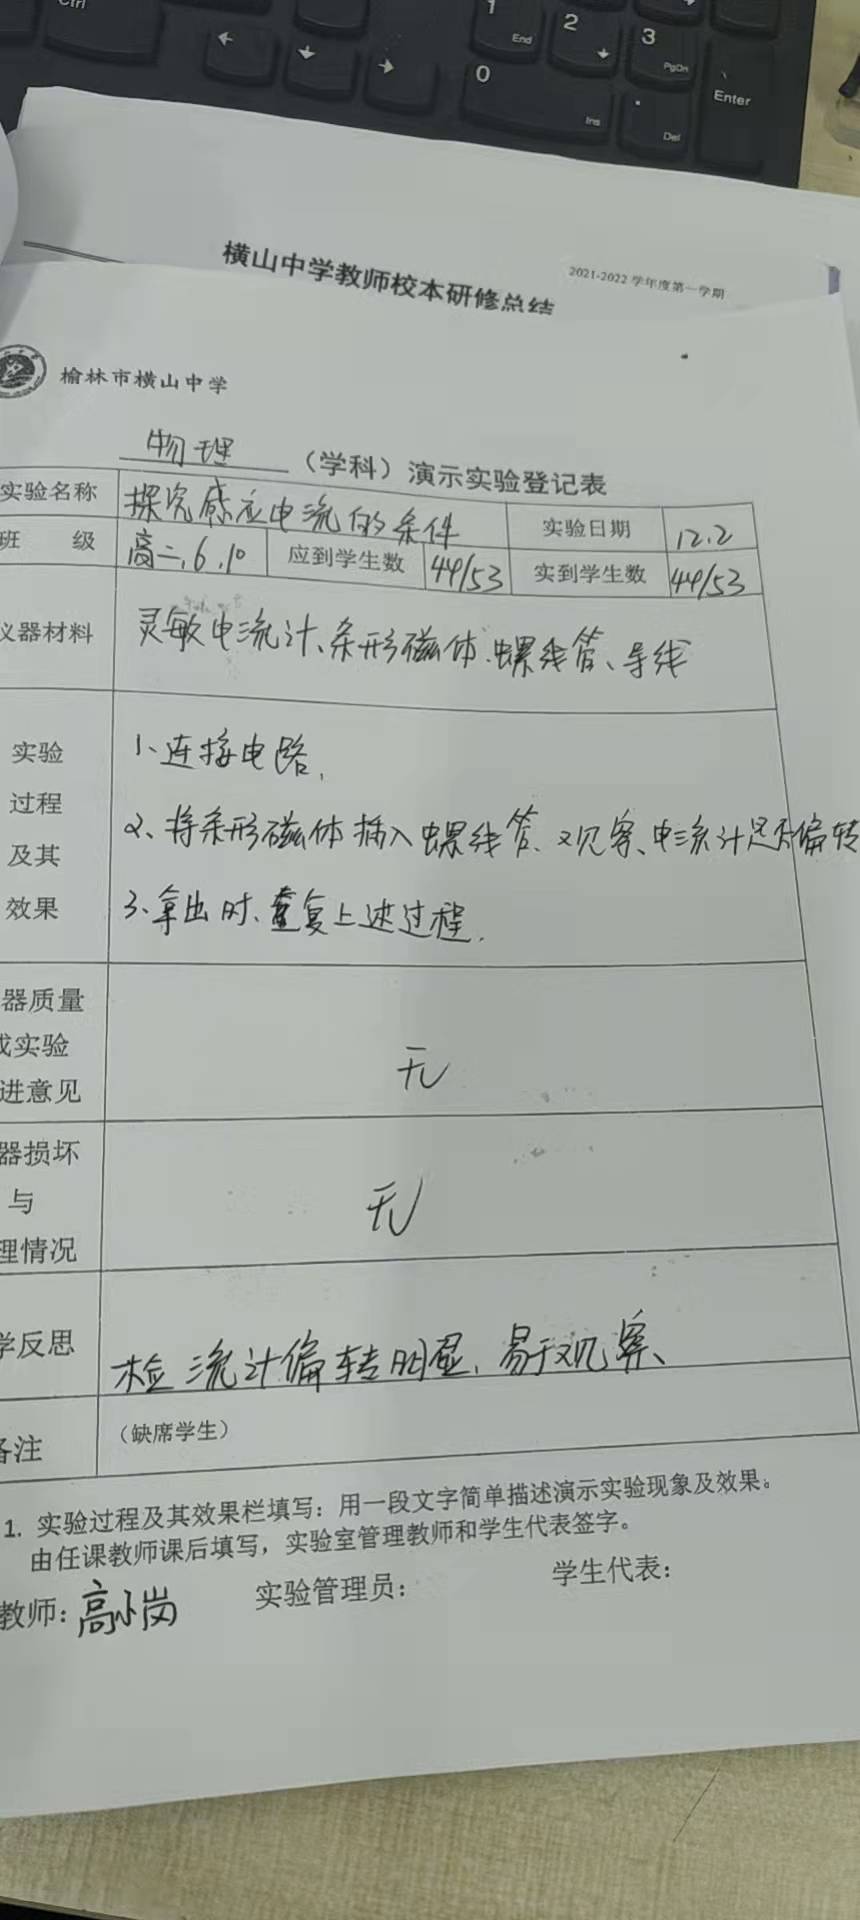 Ctrl
1
End
2
3
PgDn
0
Ins
.
Del
Enter
横山中学教师校本研修总结
2021-2022 学年度第一学期
榆林市横山中学
物理 （学科）演示实验登记表
实验名称 探究感应电流的条件 实验日期 12.2
班 级 高二.6.10 应到学生数 44/53 实到学生数 44/53
仪器材料 灵敏电流计、条形磁体、螺线管、导线
实验
过程
及其
效果
1、连接电路.
2、将条形磁体插入螺线管、观察、电流计是否偏转
3、拿出时、重复上述过程.
器质量
或实验
进意见
无
器损坏
与
理情况
无
学反思 检流计偏转明显、易于观察、
备注 （缺席学生）
1. 实验过程及其效果栏填写：用一段文字简单描述演示实验现象及效果。
由任课教师课后填写，实验室管理教师和学生代表签字。
教师：高小岗 实验管理员： 学生代表：